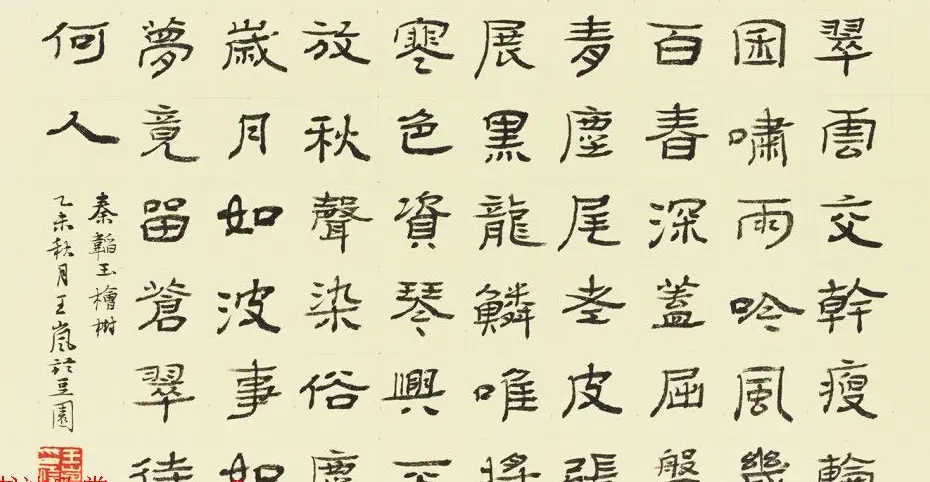 翠雲交幹瘦輪
囷嘯雨吟風幾
百春深蓋屈盤
青麈尾老皮張
展黑龍鱗唯將
寒色資琴興不
放秋聲染俗塵
歲月如波事如
夢竟留蒼翠待
何人
秦韜玉檜樹
乙未秋月王嵐於豆園